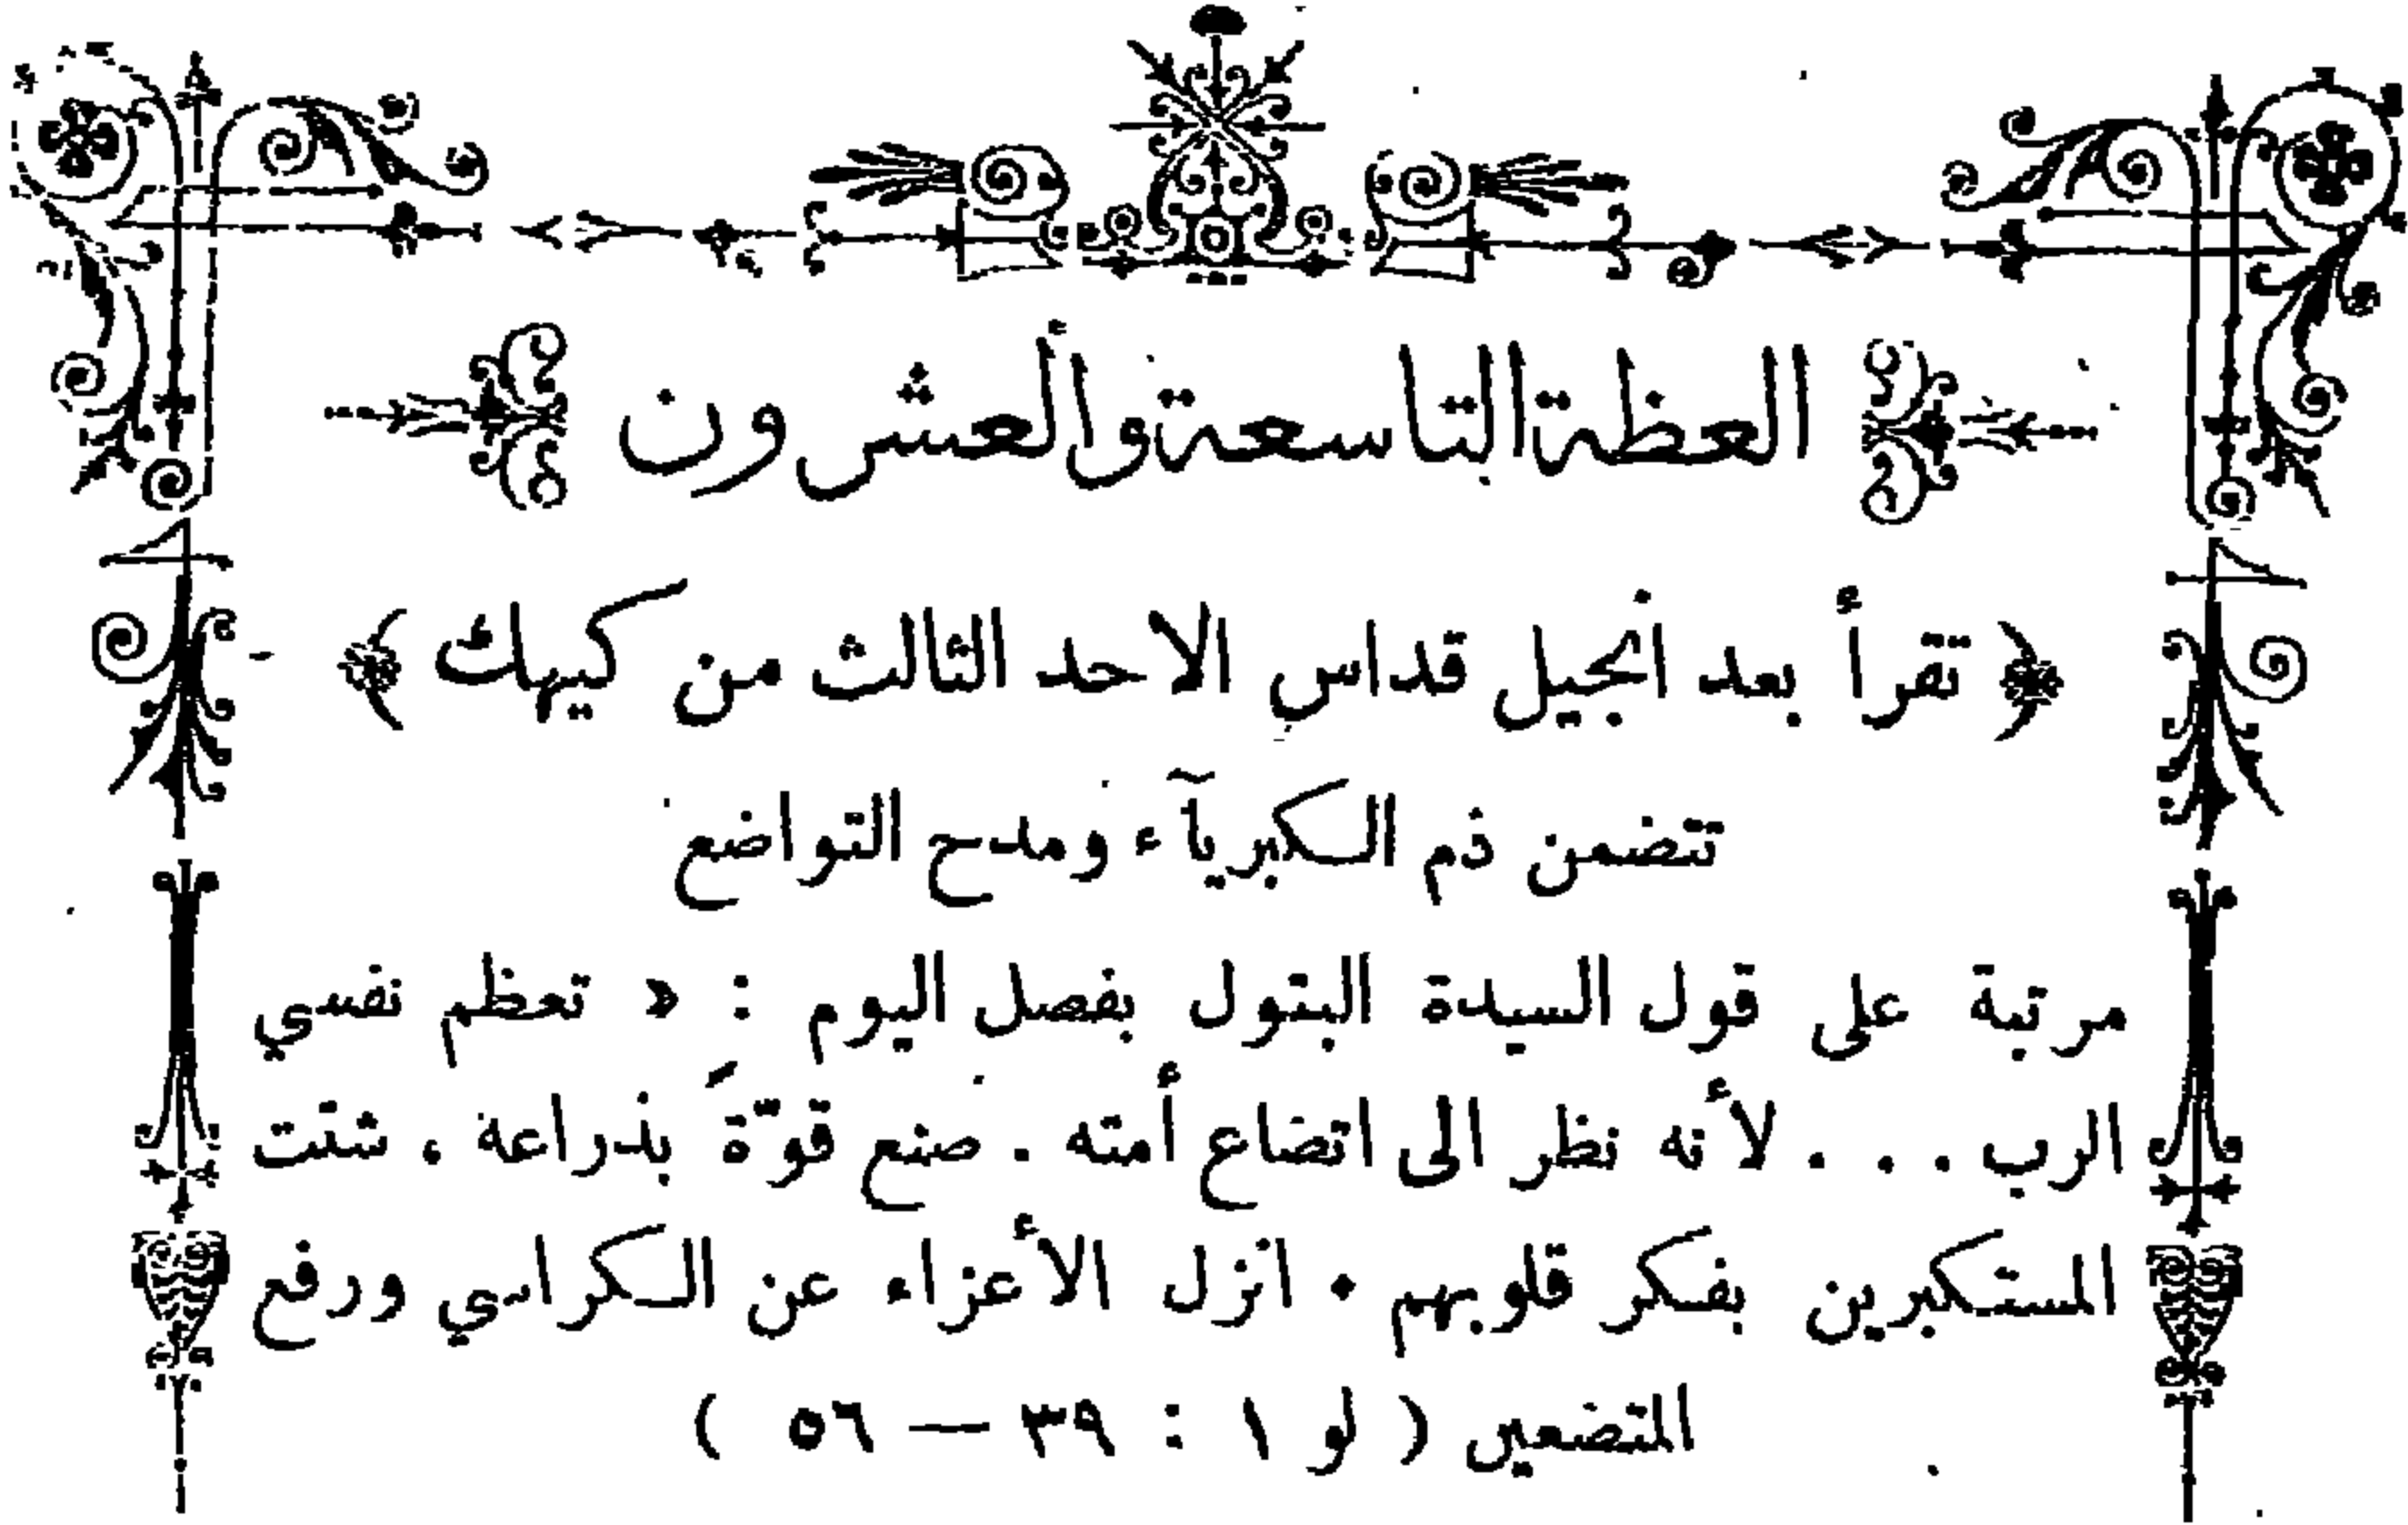 العظة التاسعة وألعشرون
﴿ تقرأ بعد انجيل قداس الاحد الثالث من كيهك ﴾
تتضمن ذم الكبريآء ومدح التواضع
مرتبة على قول السيدة البتول بفصل اليوم : « تعظم نفسي
الرب . . . لأنه نظر الى اتضاع أمته . صنع قوّةً بذراعة . شتت
المستكبرين بفكر قلوبهم . انزل الأعزاء عن الكراسي ورفع
المتضعين ( لو ١ : ٣٩ — ٥٦ )